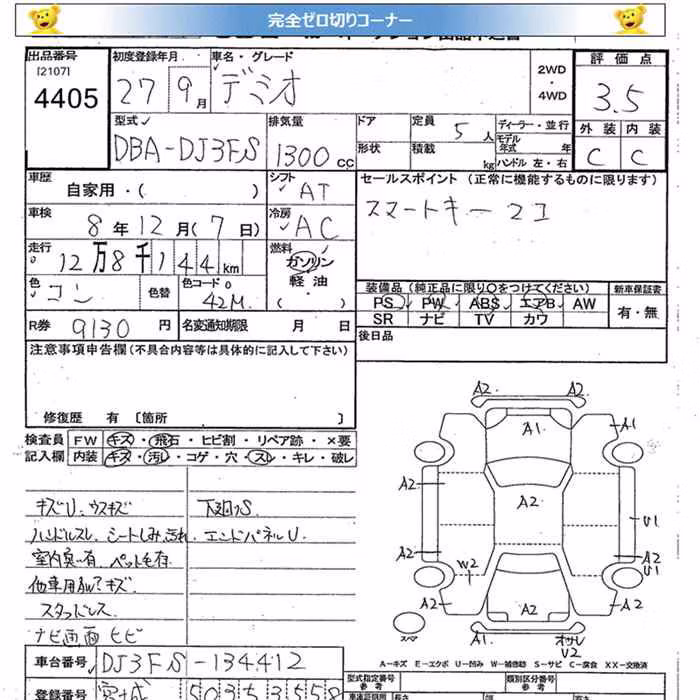 完全ゼロ切りコーナー
出品番号 [2107] 4405
初度登録年月 27 9月
車名・グレード デミオ
2WD・4WD
評価点 3.5
外装 内装
C C
型式 DBA-DJ3FS
排気量 1300 CC
ドア 形状
定員 5人
積載 kg
ディーラー・並行
モデル年式 年
ハンドル 左・右
車歴 自家用・( )
シフト AT
セールスポイント (正常に機能するものに限ります)
スマートキー 2コ
車検 8年12月(7日)
冷房 AC
走行 12万8千144km
燃料 ガソリン・軽油・( )
色 コン 色替 色コード 42M
装備品(純正品に限り○をつけてください)
PS PW ABS エアB AW
SR ナビ TV カワ
新車保証書 有・無
R券 9130円 名変通知期限 月 日
後日品
注意事項申告欄(不具合内容等は具体的に記入して下さい)
修復歴 有 〔箇所 〕
検査員記入欄
FW キズ・飛石・ヒビ割・リペア跡・×要
内装 キズ・汚レ・コゲ・穴・スレ・キレ・破レ
キズU、ウスキズ
下廻りS
ハンドルスレ、シートしみ、汚れ
エンドパネルU
室内臭い有、ペット毛有
他車用AW?キズ
スタッドレス
ナビ画面ヒビ
A2 A2
A1 A1
A2 A2 A2
U1
A2 A2
W2 U1
A2 A2 A2
スペア A1 オサレ
U2
A-キズ E-エクボ U-凹み W-補修跡 S-サビ C-腐食 XX-交換済
車台番号 DJ3FS-134412
型式指定番号 類別区分番号
登録番号 宮城 503 5 3558
参考 参考
車検証記載 長さ